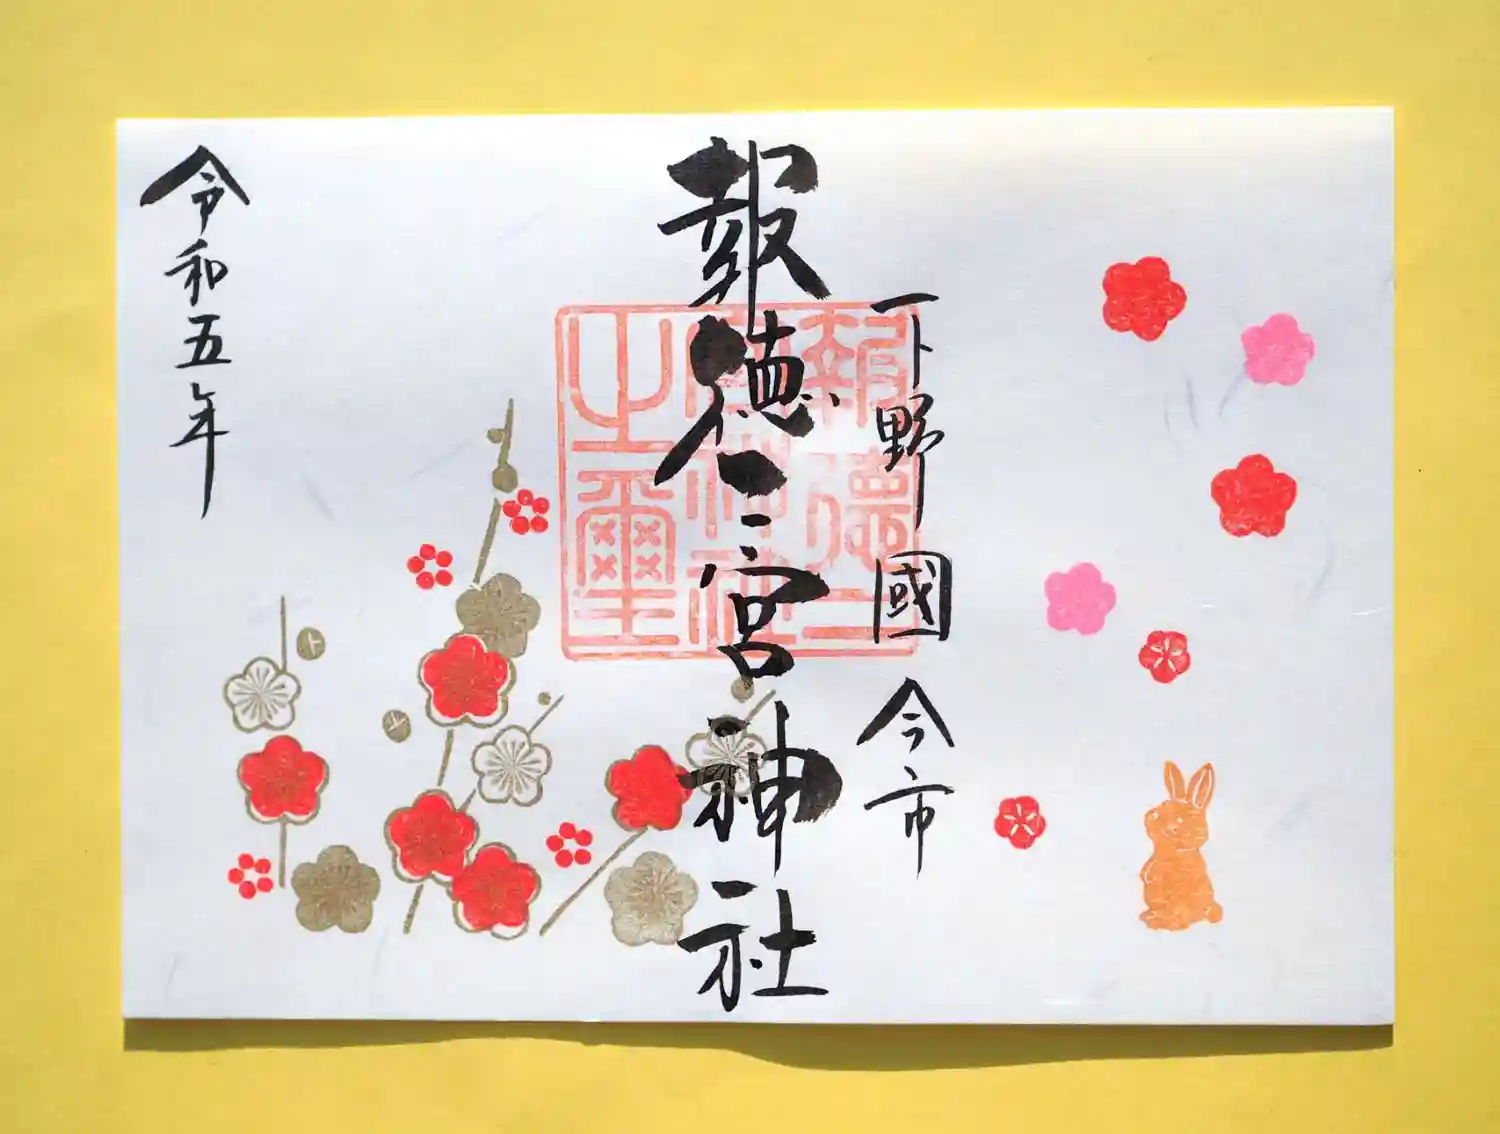 下野國 今市
報徳二宮神社
令和五年
報徳二
宮神社
之璽